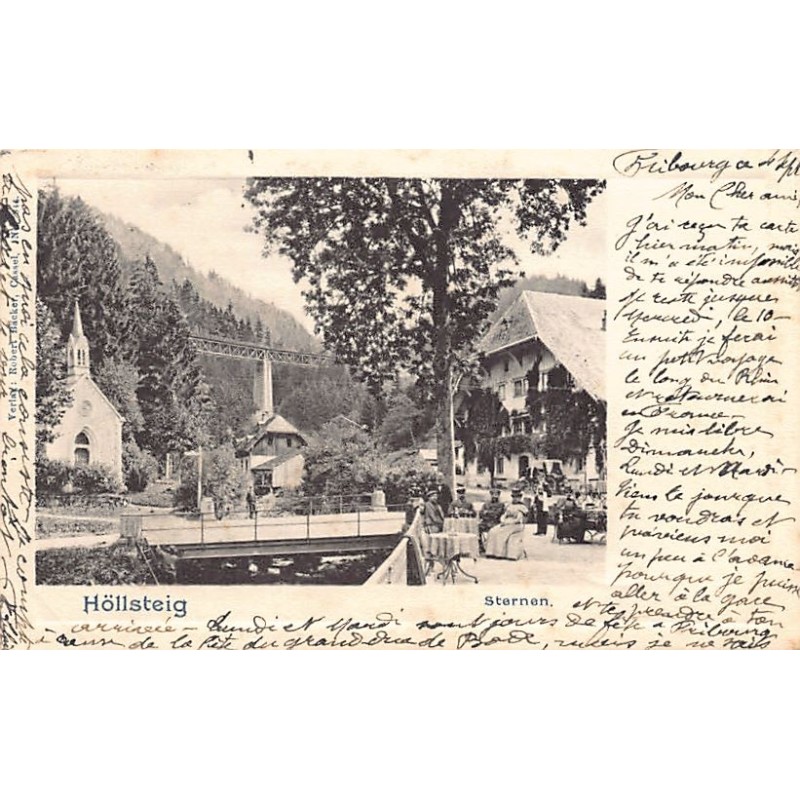 Fribourg ce 4 Sept
Mon Cher ami,
J'ai reçu ta carte
hier matin, mais
il m'a été impossible
de te répondre
Je reste jusques
Mercredi, le 10 -
Ensuite je ferai
un petit voyage
le long du Rhin
et retournerai
en France -
Je suis libre
Dimanche,
Lundi et Mardi -
Viens le jour que
tu voudras et
préviens moi
un peu à l'avance
pour que je puisse
aller à la gare
et te prendre à ton
arrivée - Lundi et Mardi sont jours de fête à Fribourg
à cause de la fête du grand duc de Bade, mais je ne sais
pas
Verlag: Robert Bäcker, Cassel,
Höllsteig
Sternen.